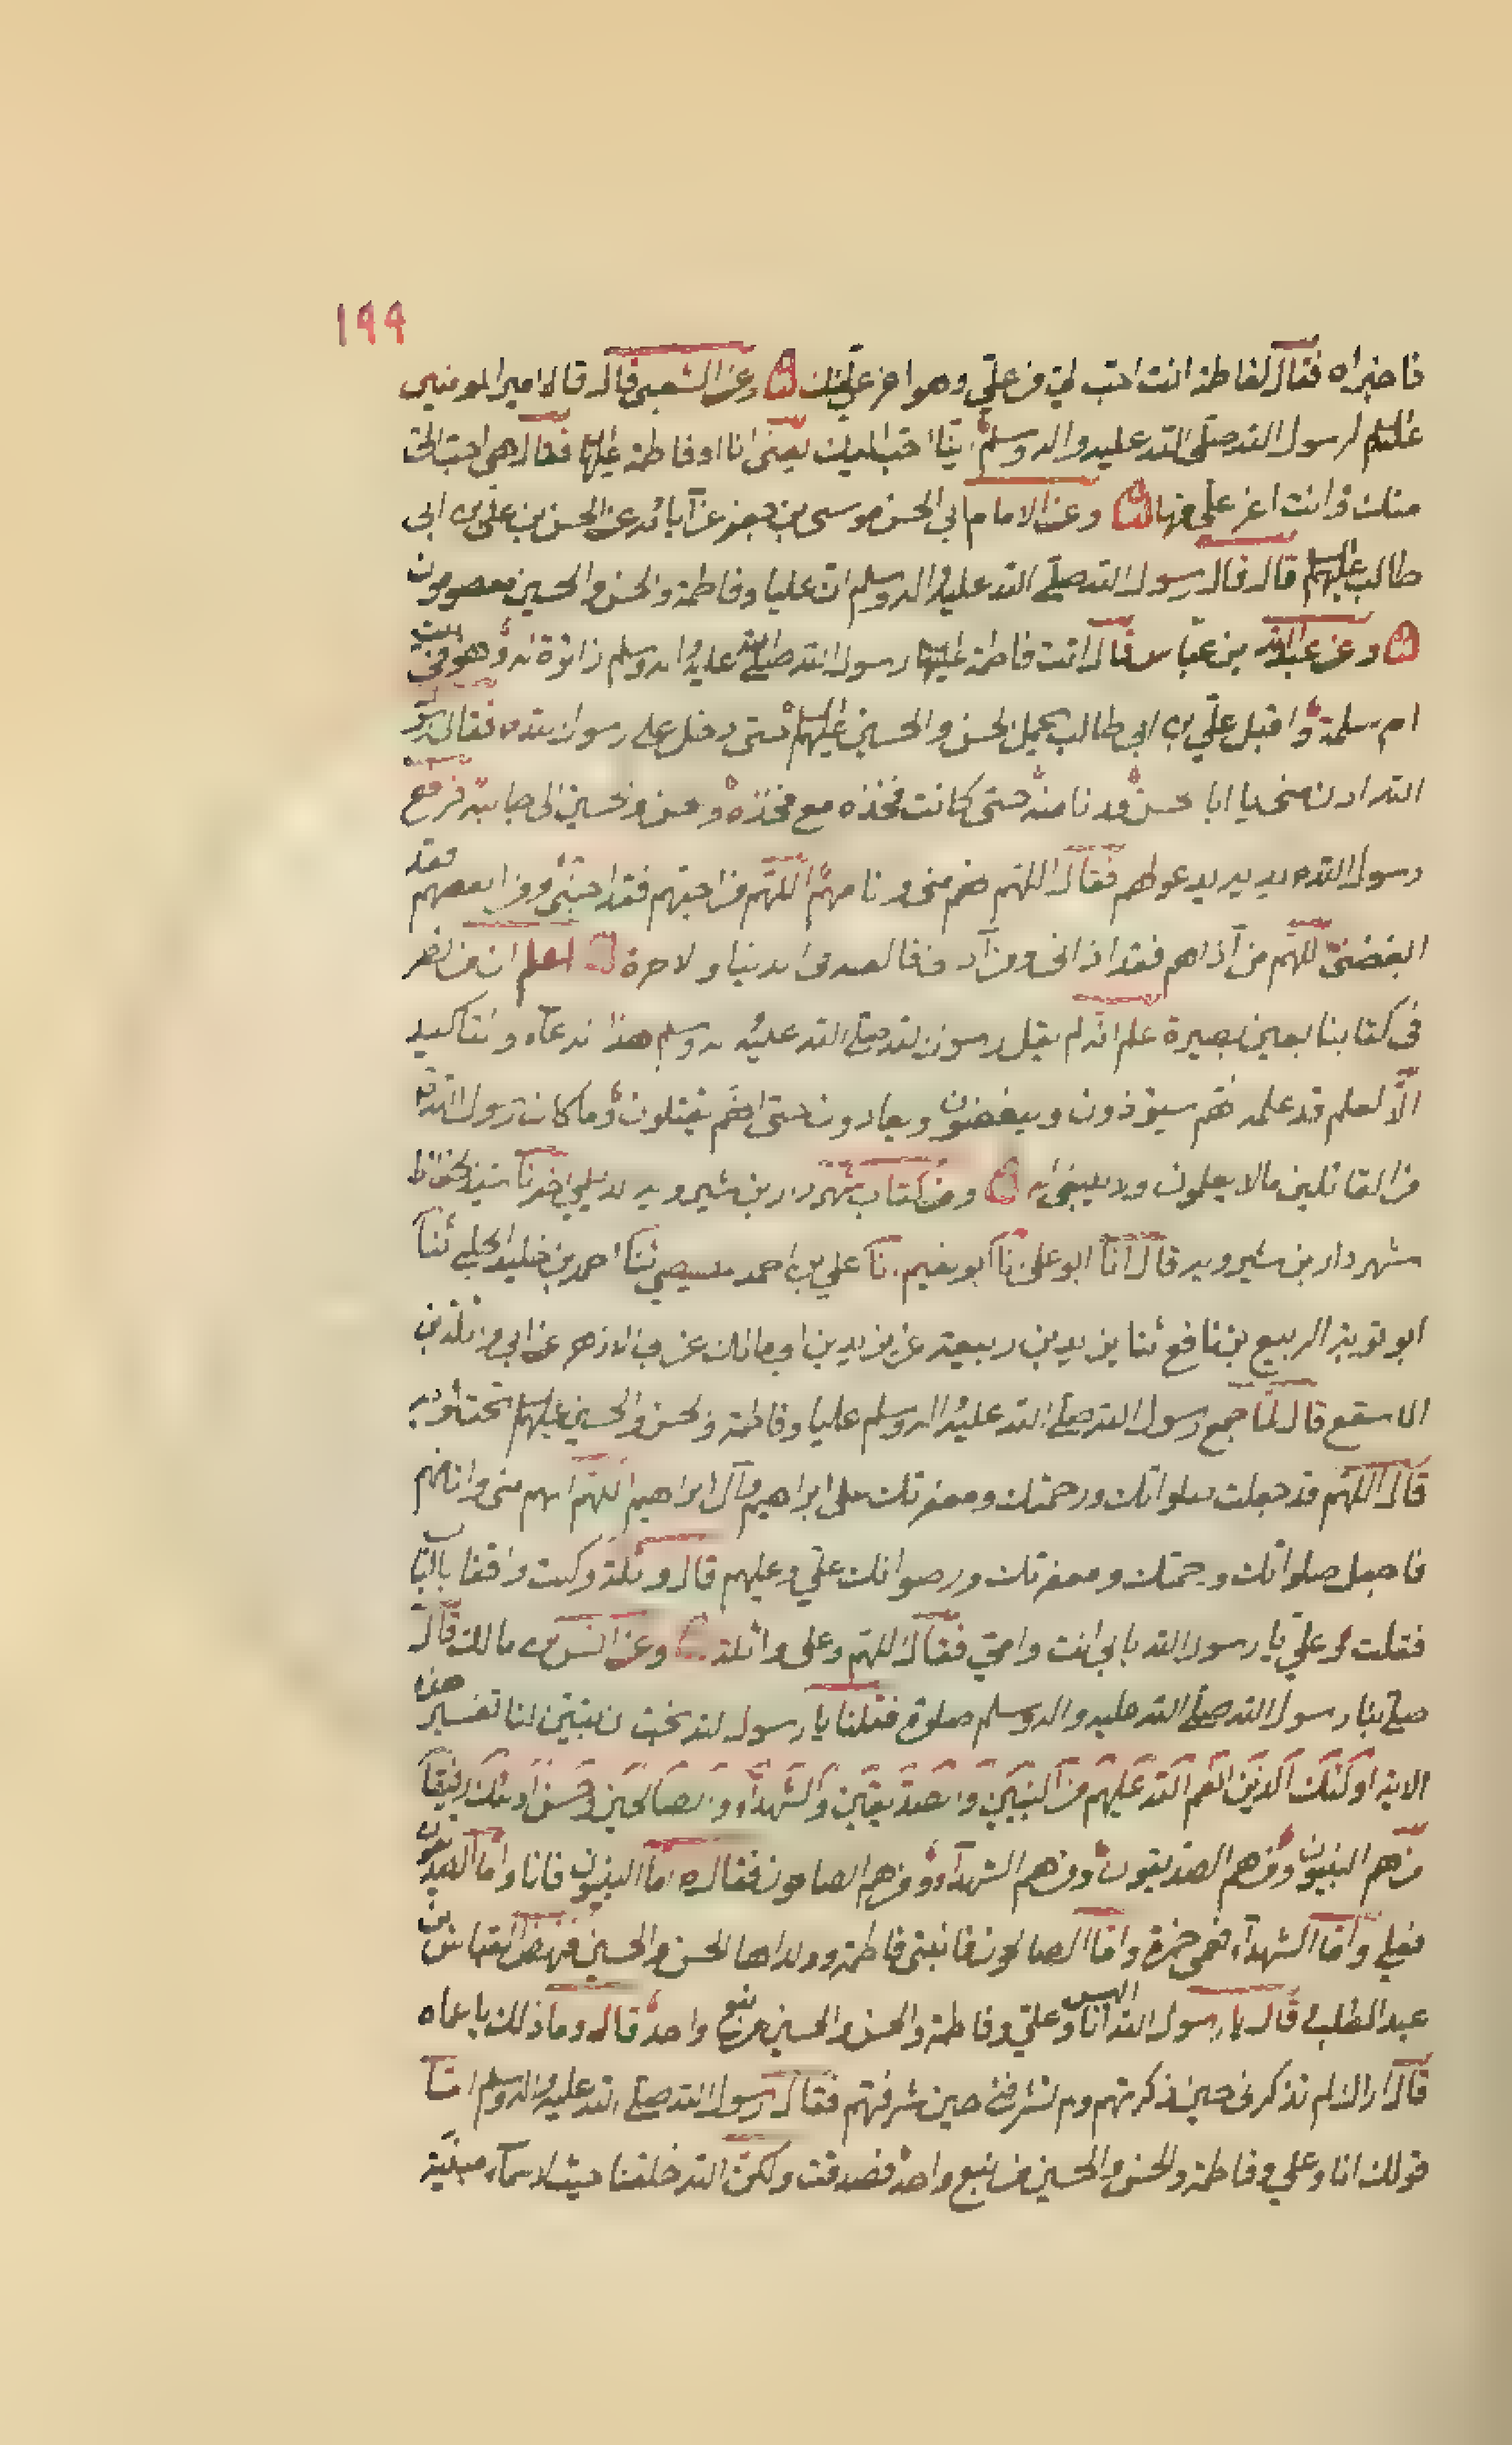 ١٩٩
فاخبراه فقال لفاطمة انت احب الي من علي وهو اعز علي منك وعن الشعبي قال قال امير المومنين
عليه السلم لرسول الله صلى الله عليه واله وسلم اينا احب اليك يعني انا او فاطمة عليها فقال هي احب الي
منك وانت اعز علي منها وعن الامام ابي الحسن موسى بن جعفر عن آبائه عن الحسن بن علي بن ابي
طالب عليهم السلم قال قال رسول الله صلى الله عليه واله وسلم ان عليا وفاطمة والحسن والحسين معصومون
وعن عبدالله بن عباس قال اتت فاطمة عليها رسول الله صلى الله عليه واله وسلم زائرة له وهو في بيت
ام سلمة واقبل علي بن ابي طالب يحمل الحسن والحسين عليهم السلم حتى دخل على رسول الله فقال
الله ادن مني يا ابا حسن فدنا منه حتى كانت فخذه مع فخذه وحسن وحسين الى جانبه فرفع
رسول الله يديه يدعو لهم فقال اللهم هم مني وانا منهم اللهم من احبهم فقد احبني ومن ابغضهم فقد
ابغضني اللهم من آذاهم فقد اذاني ومن آذاني في الدنيا والاخرة اعلم ان من نظر
في كتابنا بعين بصيرة علم انه لم يقل رسول الله صلى الله عليه واله وسلم هذا الدعاء والتاكيد
الا لعلم قد علمه انهم سيوذون ويبغضون ويعادون حتى انهم يقتلون وما كان رسول الله
من القائلين مالا يعلون ولا ينبغي له ومن كتاب شهردار بن شيرويه الديلمي اخبرنا سيد الحفاظ
شهردار بن شيرويه قال انا ابو علي نا ابو نعيم نا علي بن احمد المصيصي ثنا احمد بن خليد الحلبي ثنا
ابو توبة الربيع بن نافع ثنا يزيد بن ربيعة عن يزيد بن ابي مالك عن ابي الازهر عن واثلة بن
الاسقع قال لما جمع رسول الله صلى الله عليه واله وسلم عليا وفاطمة والحسن والحسين عليهم السلم تحت ثوبه
قال اللهم قد جعلت صلواتك ورحمتك ومغفرتك على ابراهيم وآل ابراهيم اللهم انهم مني وانا منهم
فاجعل صلواتك ورحمتك ومغفرتك ورضوانك علي وعليهم قال واثلة وكنت واقفا بالباب
فقلت وعلي يا رسول الله بابي انت وامي فقال اللهم وعلى واثلة وعن انس بن مالك قال
صلى بنا رسول الله صلى الله عليه واله وسلم صلوة فقلنا يا رسول الله نحب ان تبين لنا تفسير هذه
الاية اولئك الذين انعم الله عليهم من النبيين والصديقين والشهداء والصالحين وحسن اولئك رفيقا
من هم النبيون ومن هم الصديقون ومن هم الشهداء ومن هم الصالحون فقال اما النبيون فانا واما الصديقون
فعلي واما الشهداء فعمي حمزة واما الصالحون فابنتي فاطمة وولداها الحسن والحسين فنهض العباس بن
عبد المطلب قال يا رسول الله اليس انا وعلي وفاطمة والحسن والحسين من نبع واحد قال وما ذلك يا عماه
قال اراك لم تذكرني حين ذكرتهم ولم تشرفني حين شرفتهم فقال رسول الله صلى الله عليه واله وسلم اما
قولك انا وعلي وفاطمة والحسن والحسين من نبع واحد فصدقت ولكن الله خلقنا حيث لا سماء مبنية